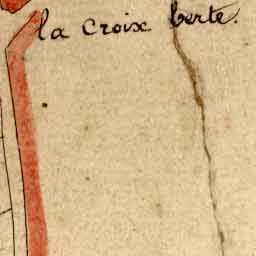 la croix berte.